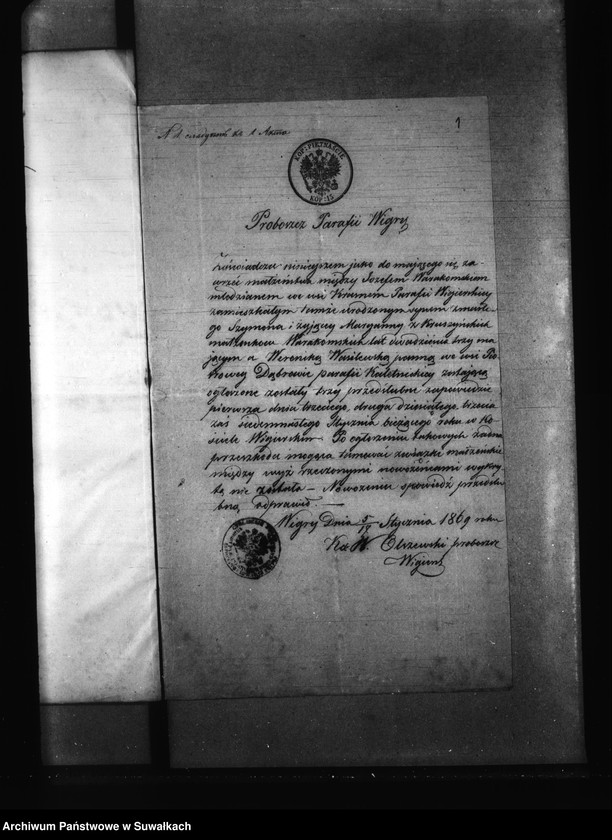 1
N 1 do 1 Aktu
KOP: PIĘTNAŚCIE
KOP: 15
Proboszcz Parafii Wigry
Zaświadcza niniejszem jako do mającego się za-
wrzeć małżeństwa między Józefem Warakomskim
młodzianem we wsi Krusznik Parafii Wigierskiej
zamieszkałym tamże urodzonym synem zmarłe-
go Szymona i żyjącej Maryanny z Kruszyńskich
małżonków Warakomskich lat dwadzieścia trzy ma-
jącym a Weroniką Wasilewską panną we wsi
Dąbrowie parafii Kaletnickiej zostającą
ogłoszone zostały trzy przedślubne zapowiedzie
pierwsza dnia trzeciego, druga dziesiątego, trzecia
zaś siedmnastego Stycznia bieżącego roku w Ko-
ściele Wigierskim – Po ogłoszeniu takowych żadna
przeszkoda mogąca tamować związki małżeńskie
między wyż rzeczonymi nowożeńcami wykry-
tą nie została – Nowożeniec spowiedź przedślu-
bną odprawił. –
Wigry Dnia 5/17 Stycznia 1869 roku
Olszewski proboszcz
Wigier
Archiwum Państwowe w Suwałkach